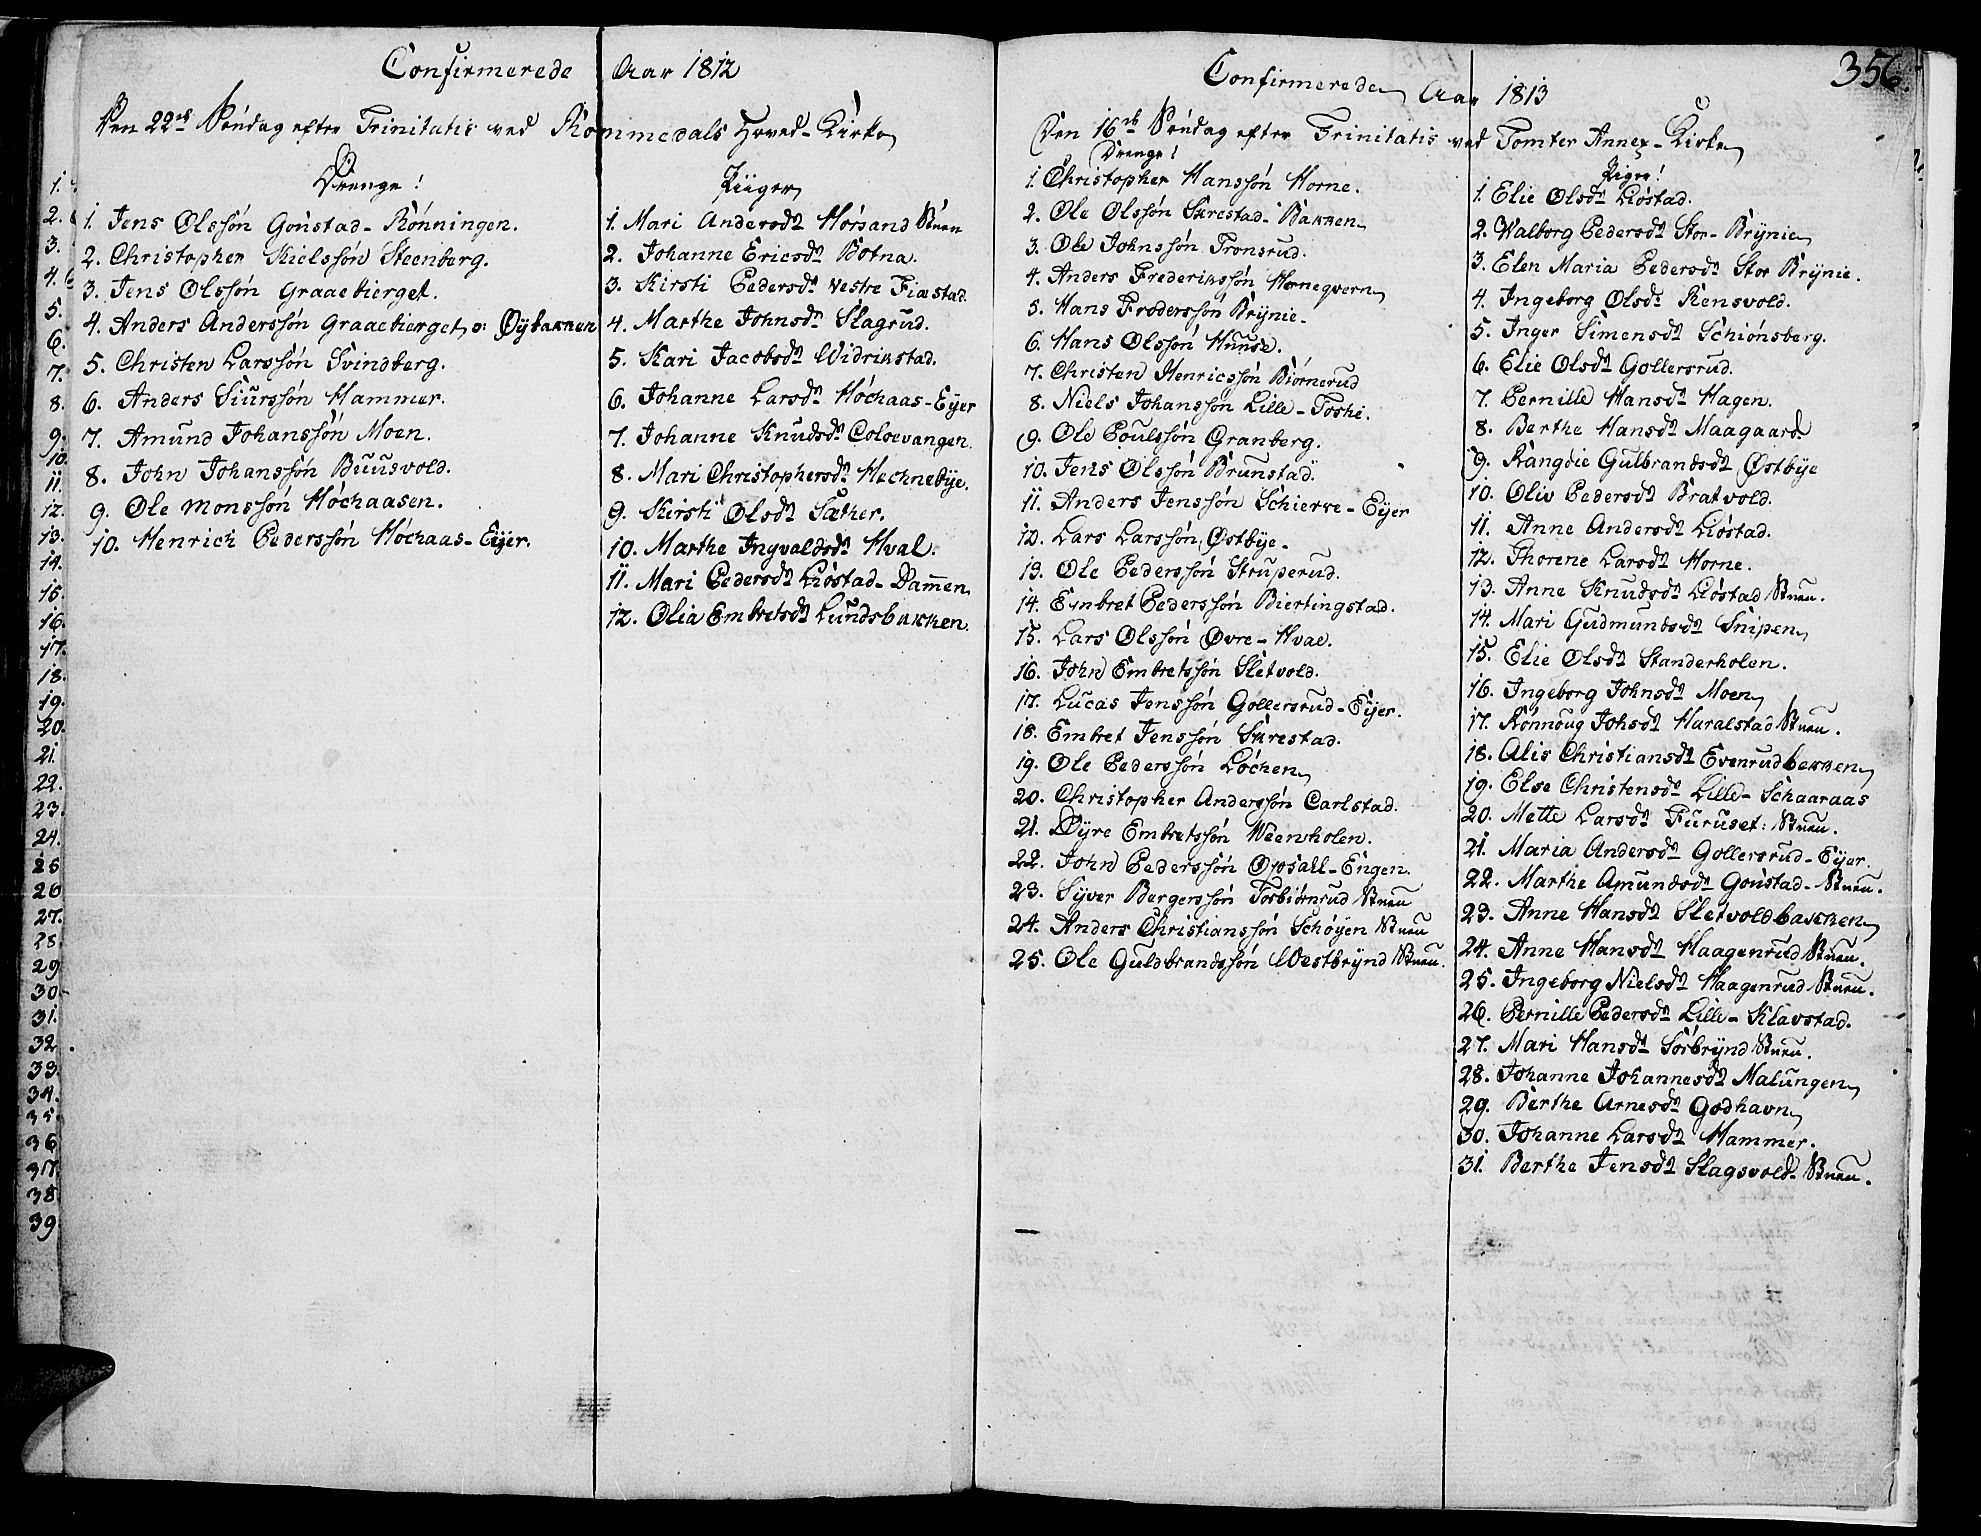 Confirmerede Aar 1812
Den 22de Søndag efter Trinitatis ved Rommedals Hoved-Kirke
Drenge!
1. Jens Olssøn Gonstad-Rønningen.
2. Christopher Nielssøn Steenberg.
3. Jens Olssøn Graaebierget.
4. Anders Anderssøn Graaebierget, o: Øybakken
5. Christen Larssøn Svindberg.
6. Anders Siurssøn Hammer.
7. Amund Johanssøn Moen.
8. John Johanssøn Buusvold.
9. Ole Monssøn Høchaasen.
10. Henrich Pederssøn Høchaas-Eyer.
Piiger
1. Mari Andersdr Horsand Stuen
2. Johanne Ericsdr Botna.
3. Kirsti Pedersdr Vestre Fiæstad.
4. Marthe Johnsdr Slagrud.
5. Kari Jacobsdr Widrikstad.
6. Johanne Larsdr Høchaas-Eyer
7. Johanne Knudsdr Coloevangen.
8. Mari Christophersdr Hechnebye.
9. Kersti Olsdr Sæther.
10. Marthe Ingvaldsdr Hval.
11. Mari Pedersdr Liøstad-Dammen
12. Olia Embretsdr Lundsbakken.
356.
Confirmerede Aar 1813
Den 16de Søndag efter Trinitatis ved Tomter Annex-Kirke
Drenge!
1. Christopher Hanssøn Horne.
2. Ole Olssøn Skrestad-Bakken
3. Ole Johnssøn Tronsrud.
4. Anders Frederikssøn Hornegvern
5. Hans Froderssøn Brynie.
6. Hans Olssøn Huuse.
7. Christen Henricssøn Biørnerud
8. Niels Johanssøn Lille-Toshi.
9. Ole Poulssøn Granberg.
10. Jens Olssøn Brunstad
11. Anders Jenssøn Schierve-Eyer
12. Lars Larssøn Østbye.
13. Ole Pederssøn Struperud.
14. Embret Pederssøn Biertingstad.
15. Lars Olssøn Øvre-Hvae.
16. John Embretssøn Sletvold.
17. Lucas Jenssøn Gollersrud-Eyer.
18. Embret Jenssøn Skrestad.
19. Ole Pederssøn Løchen
20. Christopher Anderssøn Carlstad.
21. Dyre Embretssøn Weenholen.
22. John Pederssøn Opsall-Engen.
23. Syver Bergerssøn Torbiørnrud Stuen
24. Anders Christianssøn Schøyen Stuen
25. Ole Guldbrandssøn Westbrynd Stuen.
Piger!
1. Elie Olsdr Liøstad.
2. Walborg Pedersdr Stor-Brynie
3. Elen Maria Pedersdr Stor Brynie.
4. Ingeborg Olsdr Rensvold.
5. Inger Simensdr Schiønsberg.
6. Elie Olsdr Gollersrud.
7. Pernille Hansdr Hagen.
8. Berthe Hansdr Maagaard.
9. Rangdie Gulbrandsdr Østbye
10. Oliv Pedersdr Bratvold.
11. Anne Andersdr Liøstad.
12. Thorene Larsdr Horne.
13. Anne Knudsdr Liøstad Stuen.
14. Mari Gudmundsdr Snipen
15. Elie Olsdr Standerholen.
16. Ingeborg Johnsdr Moen
17. Rønnoug Johsdr Haralstad Stuen.
18. Alis Christiansdr Evenrudbekken
19. Else Christensdr Lille-Schaaraas
20. Mette Larsdr Furuset: Stuen.
21. Maria Andersdr Gollersrud-Eyer.
22. Marthe Amundsdr Gonstad-Stuen.
23. Anne Hansdr Sletvoldbakken
24. Anne Hansdr Haagenrud Stuen.
25. Ingeborg Nielsdr Haagenrud Stuen.
26. Pernille Pedersdr Lille-Klavstad.
27. Mari Hansdr Sørbrynd Stuen.
28. Johanne Johannesdr Malungen
29. Berthe Arnesdr Godhavn
30. Johanne Larsdr Hammer.
31. Berthe Jensdr Slagsvold-Stuen.
1.
2.
3.
4.
5.
6.
7.
8.
9.
10.
11.
12.
13.
14.
15.
16.
17.
18.
19.
20.
21.
22.
23.
24.
25
26
27.
28.
29
30
31.
32.
33.
34.
35.
36
37.
38
39.